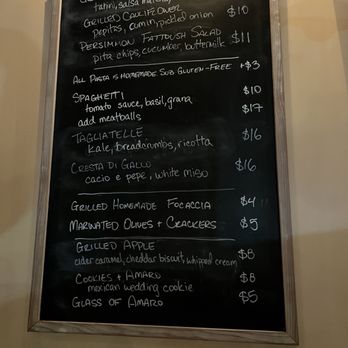 tahini, salsa macha
GRILLED CAULIFLOWER $10
pepitas, cumin, pickled onion
PERSIMMON FATTOUSH SALAD $11
pita chips, cucumber, buttermilk
ALL PASTA IS HOMEMADE SUB GLUTEN-FREE +$3
SPAGHETTI $10
tomato sauce, basil, grana
add meatballs $17
TAGLIATELLE $16
kale, breadcrumbs, ricotta
CRESTA DI GALLO $16
cacio e pepe, white miso
GRILLED HOMEMADE FOCACCIA $4
MARINATED OLIVES + CRACKERS $5
GRILLED APPLE $8
cider caramel, cheddar biscuit, whipped cream
COOKIES + AMARO $8
mexican wedding cookie
GLASS OF AMARO $5